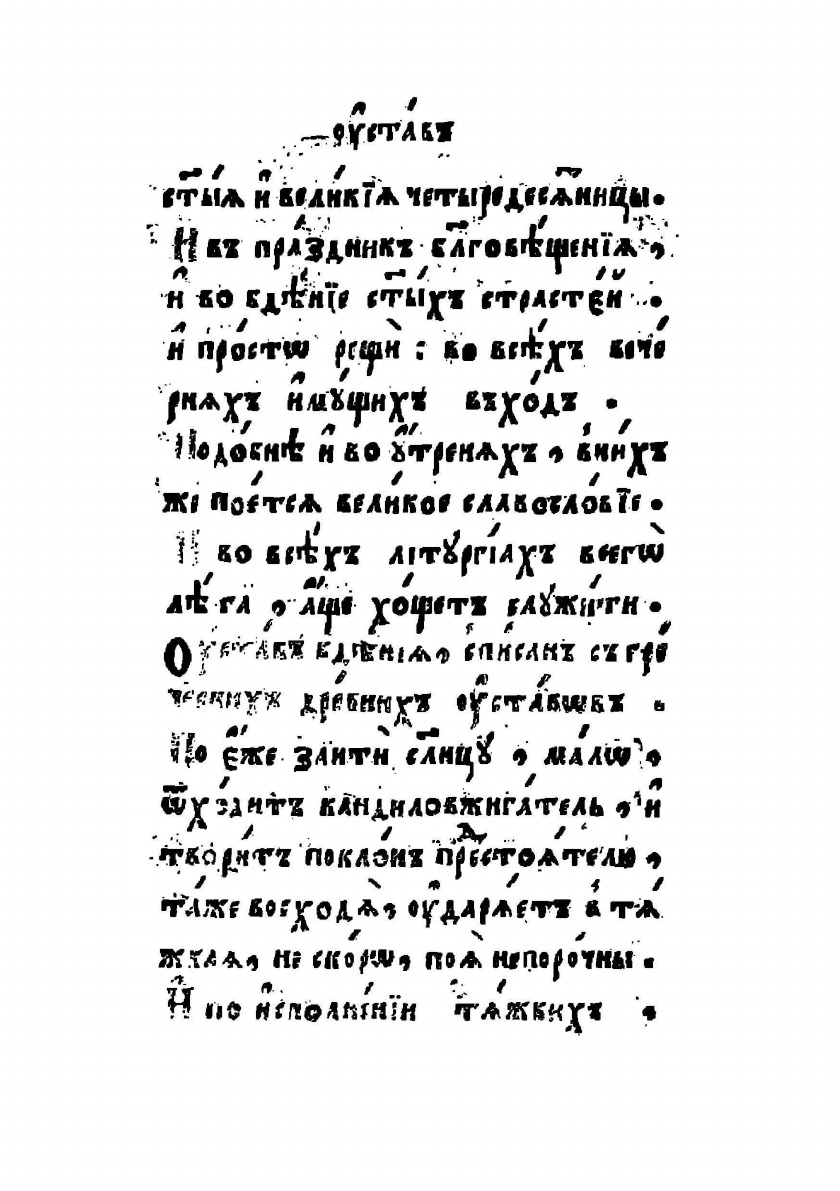 ᲂуста́въ
ст҃ы́ѧ и҆ вели́кїѧ четыредесѧ́тницы.
И҆ въ пра́здникъ бл҃говѣ́щенїѧ,
и҆ во бдѣ́нїе ст҃ы́хъ страсте́й .
и҆ про́стѡ рещѝ : во всѣ́хъ вече
рнѧхъ и҆мꙋ́щихъ въхо́дъ .
Подо́бнѣ и҆ во ᲂу҆́тренѧхъ, в ни́хъ
же пое́тсѧ вели́кое славосло́вїе.
И҆ во всѣ́хъ літꙋргі́ахъ всегѡ̀
лѣ́та, а҆́ще хо́щетъ слꙋжи́ти.
Оу҆ста́въ бдѣ́нїѧ, спи́санъ съ гре́
ческихъ дре́внихъ ᲂу҆ста́вѡвъ .
По є҆́же заитѝ сл҃нцꙋ, ма́лѡ,
ѿхо́дитъ кандиловжига́тель, и҆
твори́тъ покло́нъ предстоѧ́телю,
та́же восходѧ̀, ᲂу҆дарѧ́етъ в тѧ́
жкаѧ, не ско́рѡ, поѧ̀ непоро́чны.
И҆ по и҆сполне́нїи тѧ́жкихъ ,